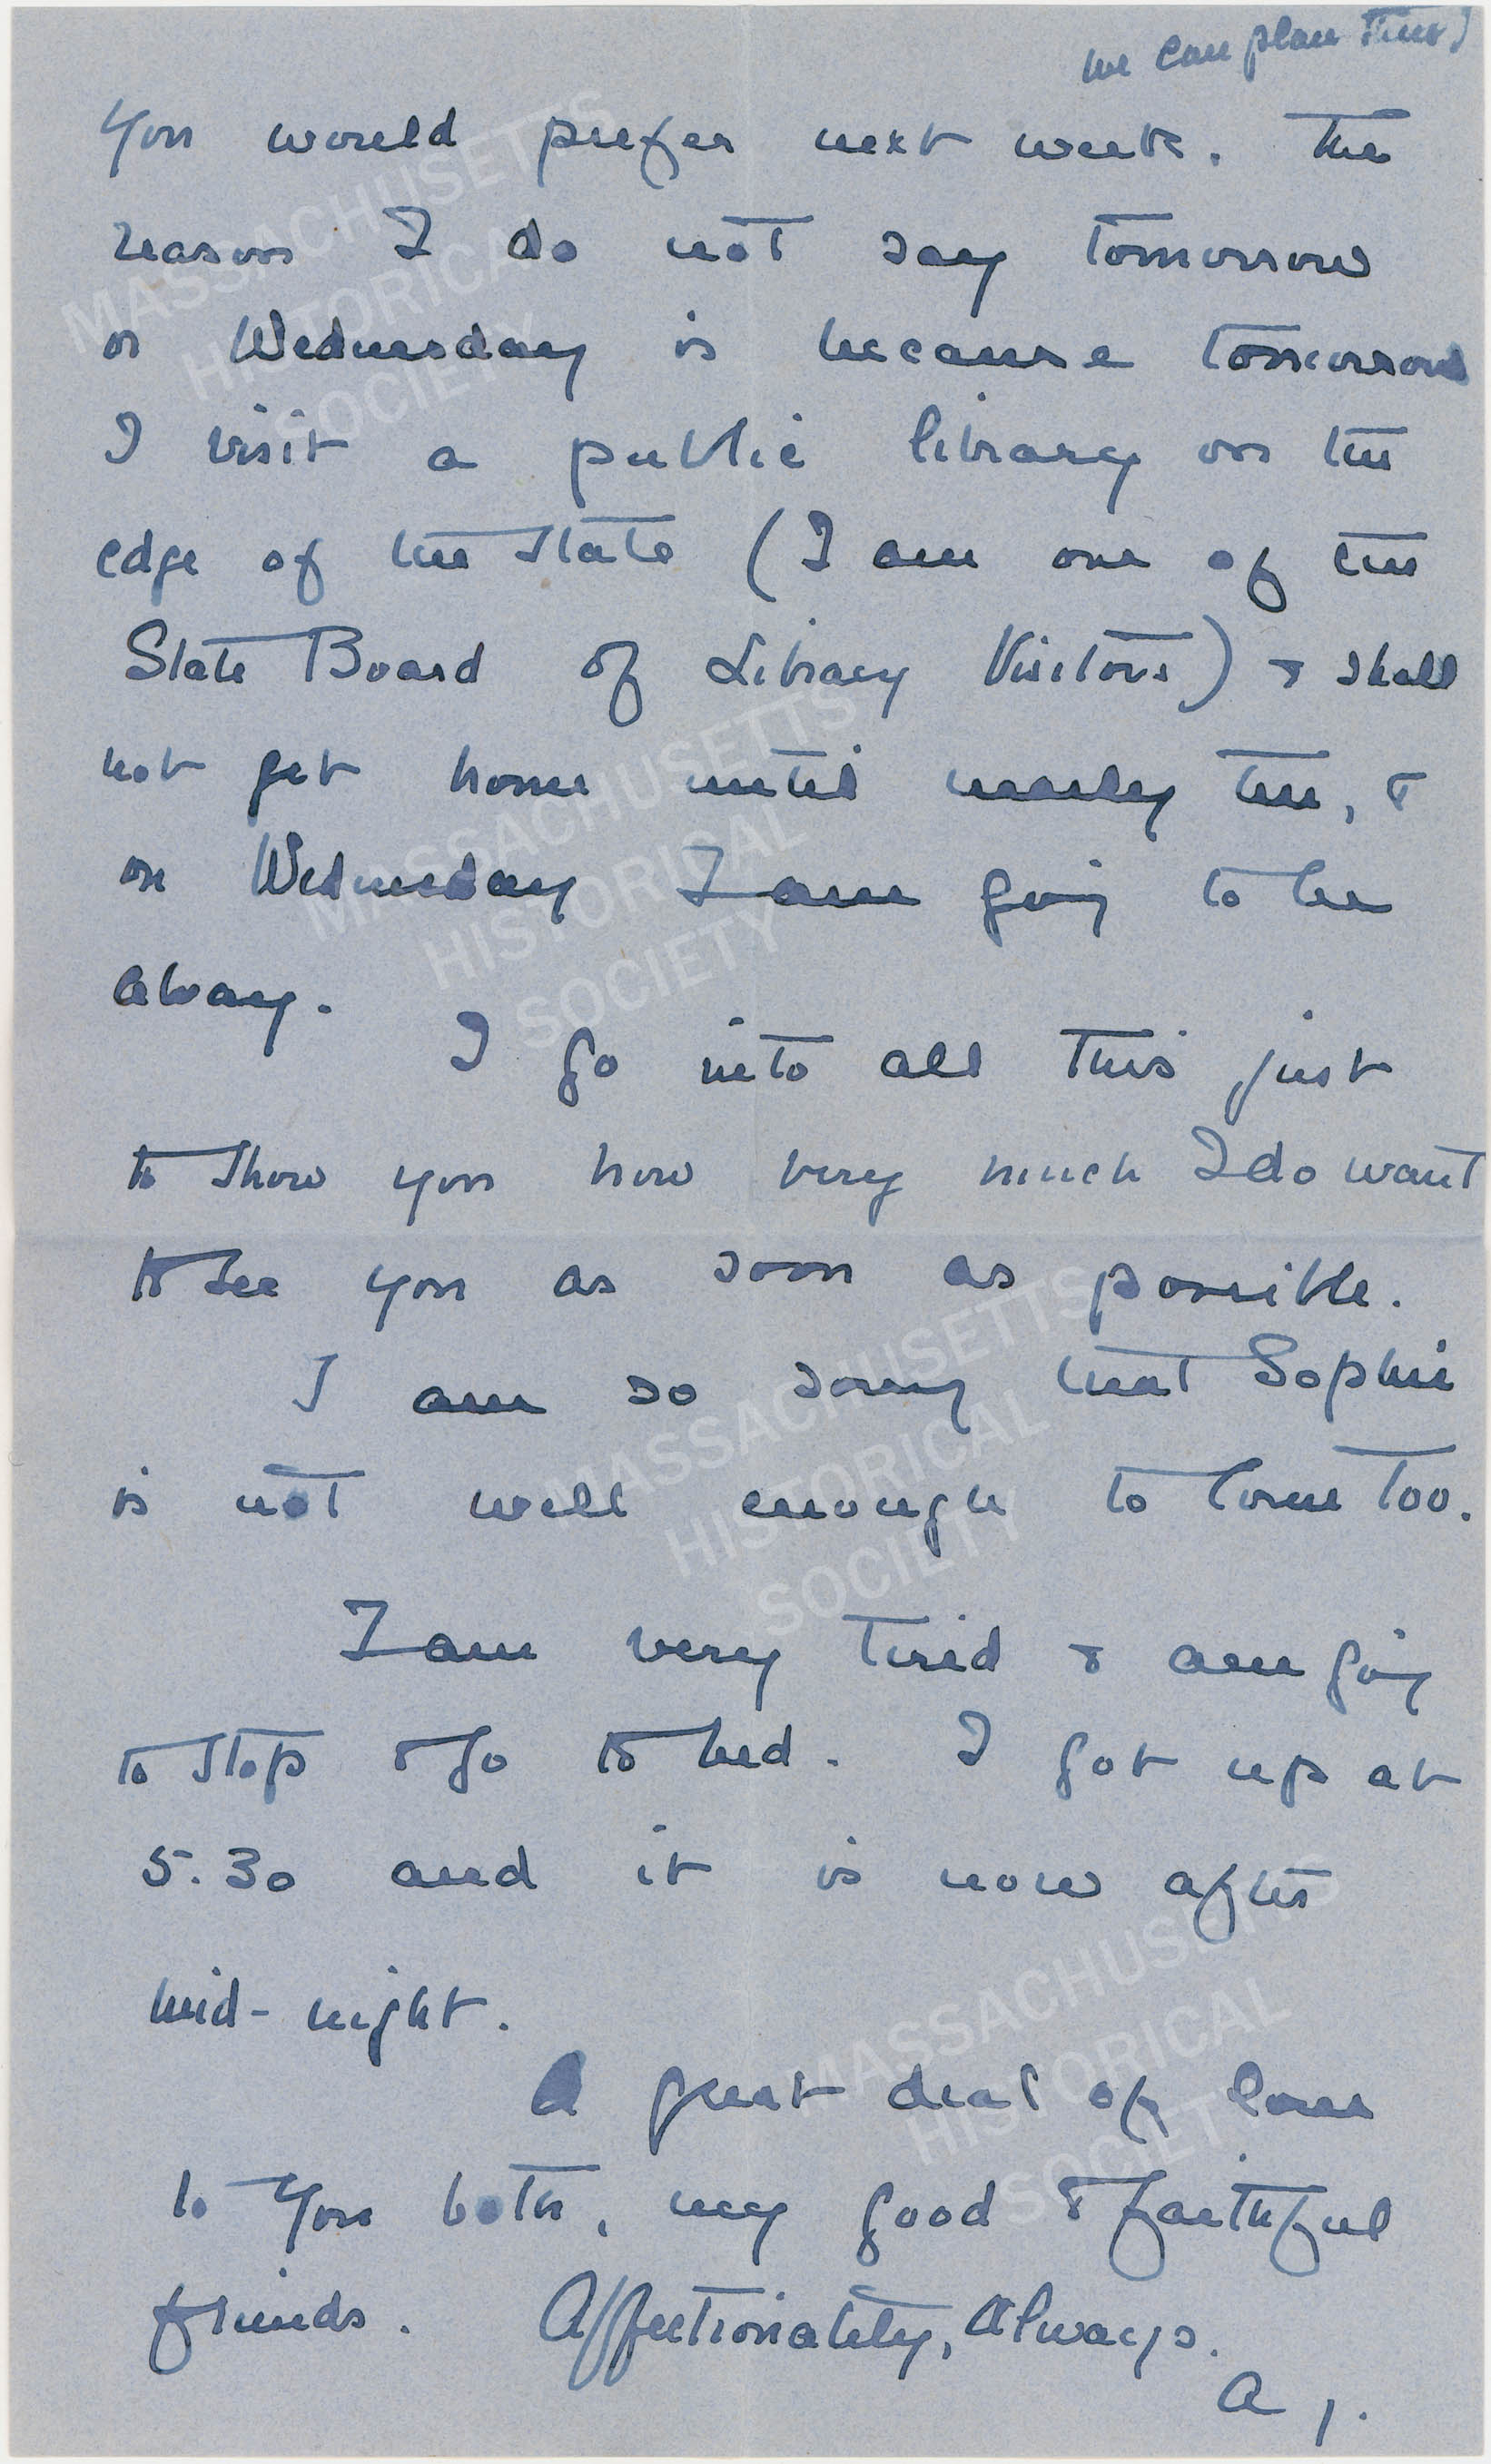 we can plan then)
You would prefer next week. The
reason I do not say tomorrow
or Wednesday is because tomorrow
I visit a public library on the
edge of the State (I am one of the
State Board of Library Visitors) & shall
not get home until nearly ten, &
on Wednesday I am going to be
away.
I go into all this just
to show you how very much I do want
to see you as soon as possible.
I am so sorry that Sophie
is not well enough to come too.
I am very tired & am going
to stop & go to bed. I got up at
5.30 and it is now after
mid-night.
A great deal of love
to you both, my good & faithful
friends. Affectionately, Always.
A
MASSACHUSETTS
HISTORICAL
SOCIETY
MASSACHUSETTS
HISTORICAL
SOCIETY
MASSACHUSETTS
HISTORICAL
SOCIETY
MASSACHUSETTS
HISTORICAL
SOCIETY